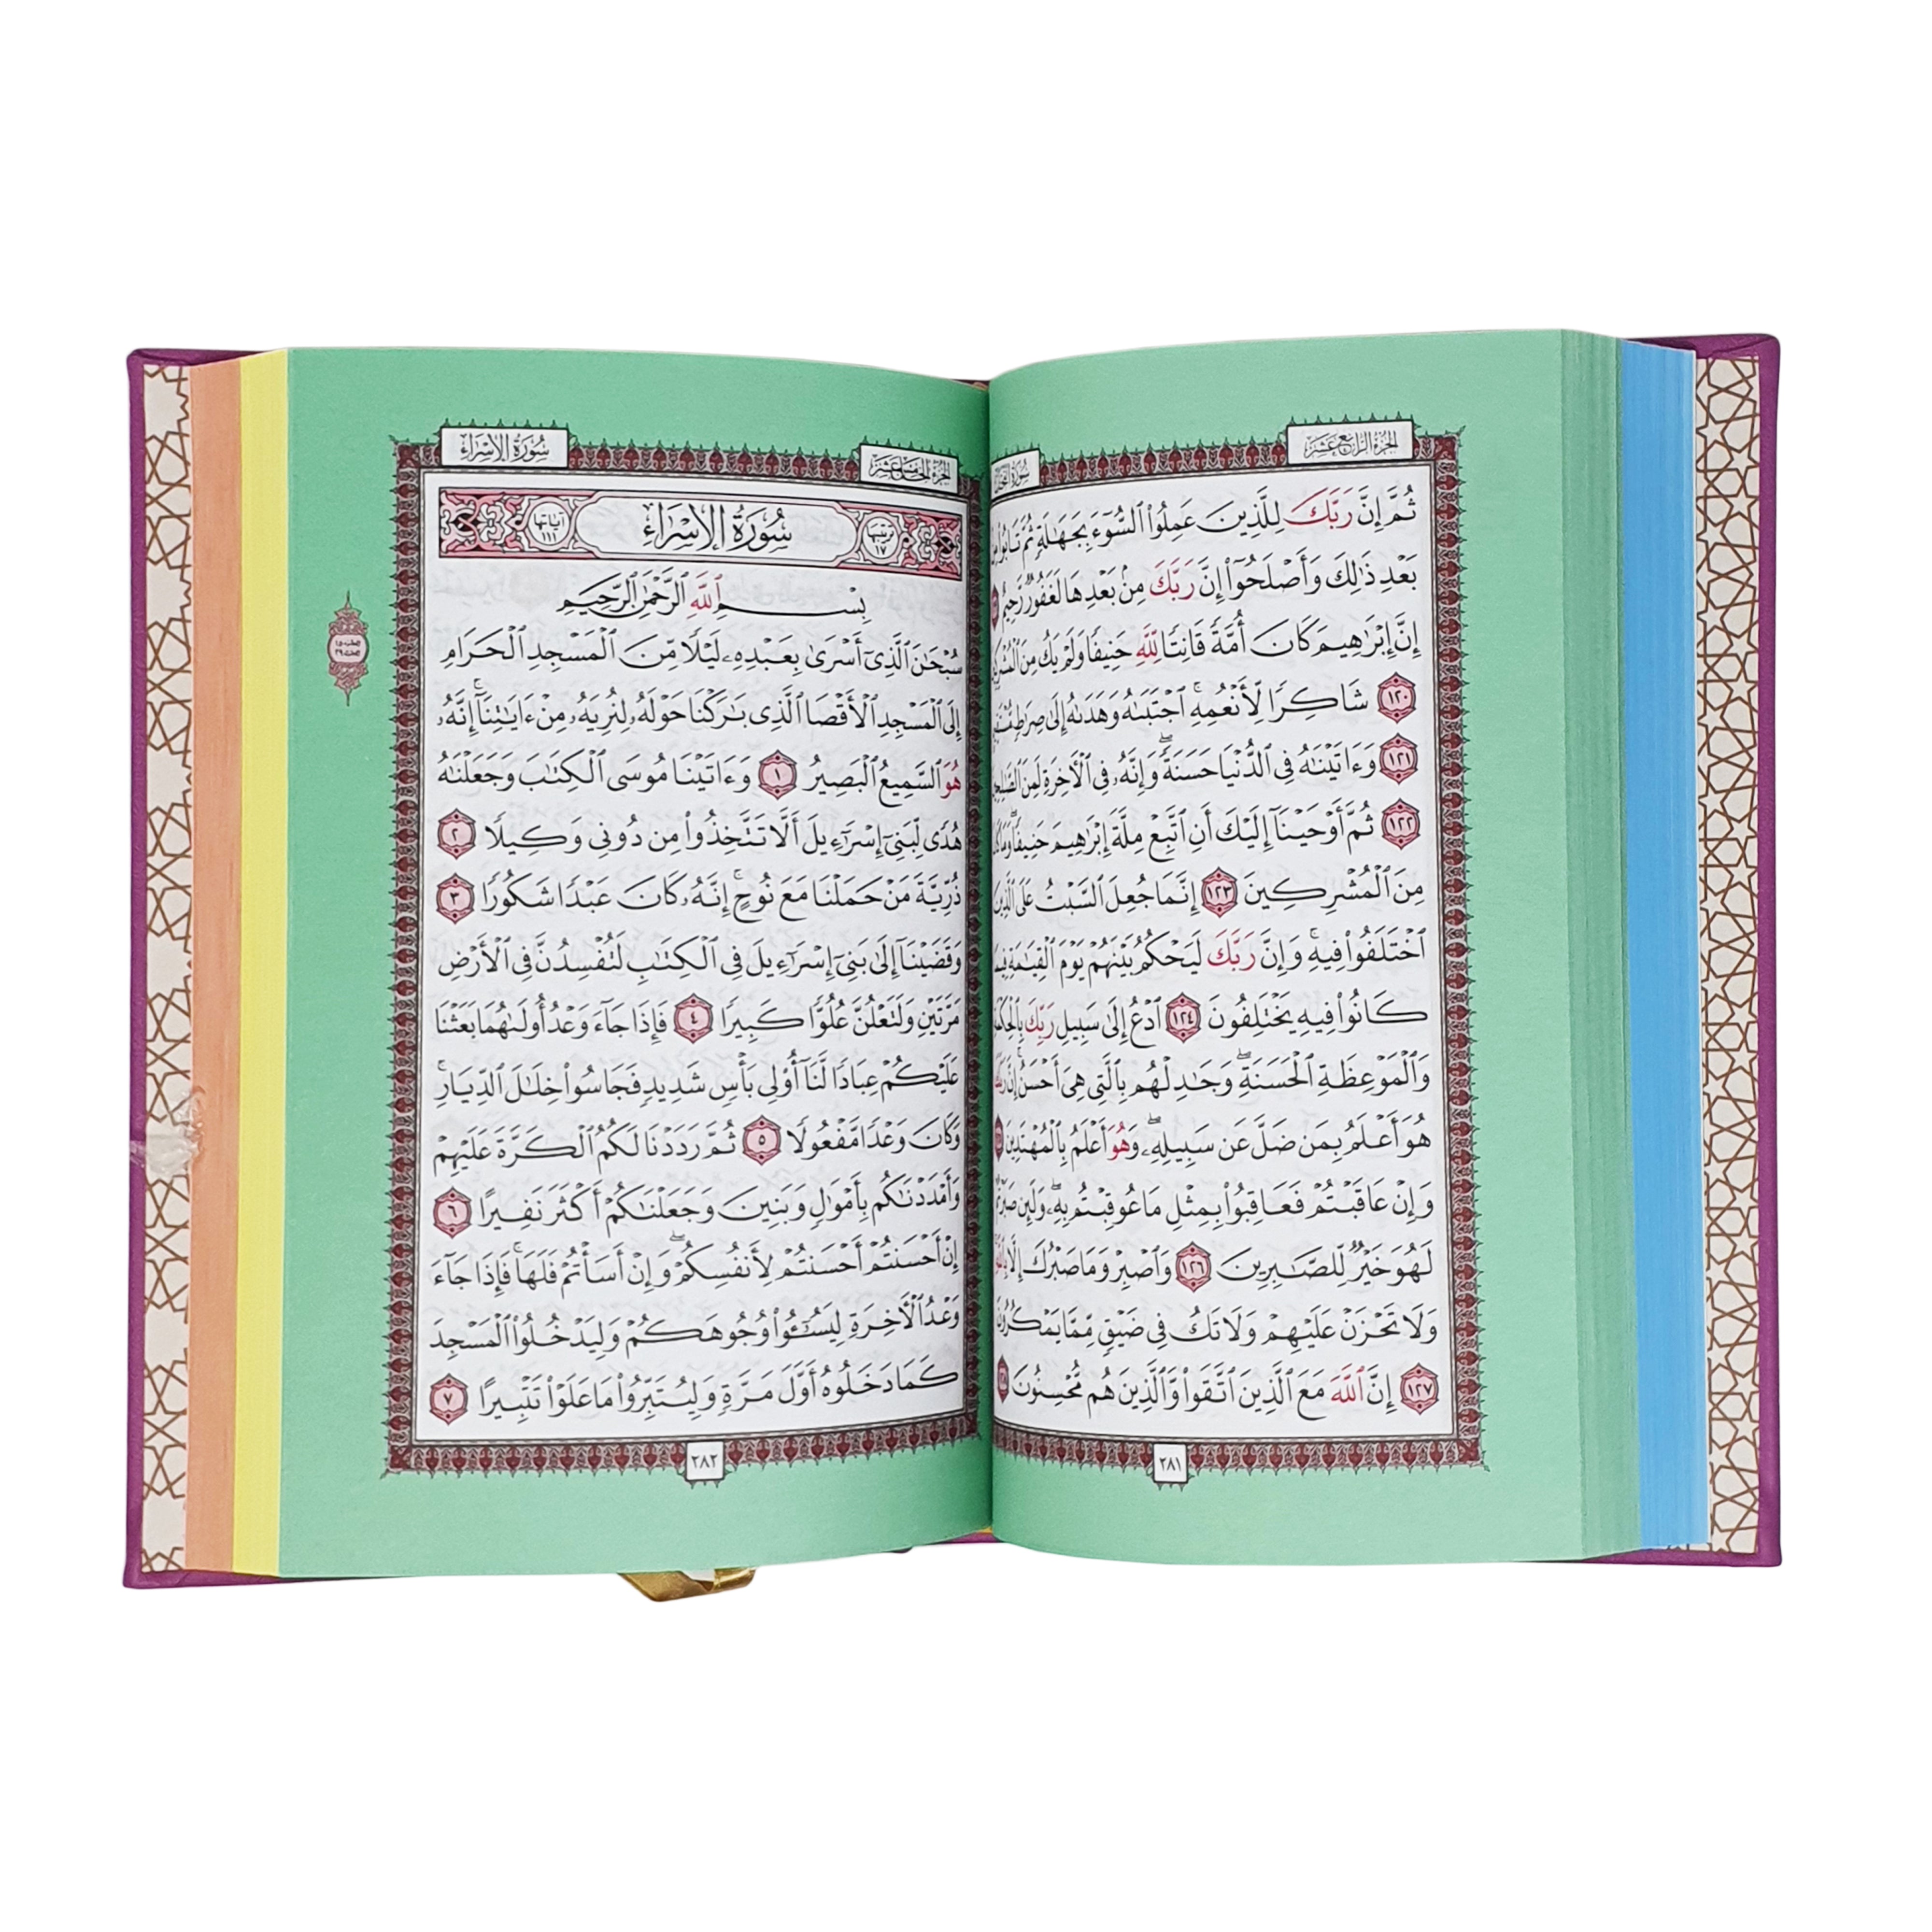 الجزء الرابع عشر
سورة النحل
ثُمَّ إِنَّ رَبَّكَ لِلَّذِينَ عَمِلُوا۟ ٱلسُّوٓءَ بِجَهَـٰلَةٍ ثُمَّ تَابُوا۟
بَعْدِ ذَٰلِكَ وَأَصْلَحُوٓا۟ إِنَّ رَبَّكَ مِنۢ بَعْدِهَا لَغَفُورٌ رَّحِيمٌ
إِنَّ إِبْرَٰهِيمَ كَانَ أُمَّةً قَانِتًا لِّلَّهِ حَنِيفًا وَلَمْ يَكُ مِنَ
١٢٠ شَاكِرًا لِّأَنْعُمِهِ ۚ ٱجْتَبَىٰهُ وَهَدَىٰهُ إِلَىٰ صِرَٰطٍ
١٢١ وَءَاتَيْنَـٰهُ فِى ٱلدُّنْيَا حَسَنَةً ۖ وَإِنَّهُۥ فِى ٱلْـَٔاخِرَةِ لَمِنَ
١٢٢ ثُمَّ أَوْحَيْنَآ إِلَيْكَ أَنِ ٱتَّبِعْ مِلَّةَ إِبْرَٰهِيمَ حَنِيفًا ۖ
مِنَ ٱلْمُشْرِكِينَ ١٢٣ إِنَّمَا جُعِلَ ٱلسَّبْتُ عَلَى ٱلَّذِينَ
ٱخْتَلَفُوا۟ فِيهِ ۚ وَإِنَّ رَبَّكَ لَيَحْكُمُ بَيْنَهُمْ يَوْمَ ٱلْقِيَـٰمَةِ فِيمَا
كَانُوا۟ فِيهِ يَخْتَلِفُونَ ١٢٤ ٱدْعُ إِلَىٰ سَبِيلِ رَبِّكَ
وَٱلْمَوْعِظَةِ ٱلْحَسَنَةِ ۖ وَجَـٰدِلْهُم بِٱلَّتِى هِىَ أَحْسَنُ ۚ إِنَّ
هُوَ أَعْلَمُ بِمَن ضَلَّ عَن سَبِيلِهِۦ ۖ وَهُوَ أَعْلَمُ بِٱلْمُهْتَدِينَ
وَإِنْ عَاقَبْتُمْ فَعَاقِبُوا۟ بِمِثْلِ مَا عُوقِبْتُم بِهِۦ ۖ وَلَئِن صَبَرْتُمْ
لَهُوَ خَيْرٌ لِّلصَّـٰبِرِينَ ١٢٦ وَٱصْبِرْ وَمَا صَبْرُكَ إِلَّا
وَلَا تَحْزَنْ عَلَيْهِمْ وَلَا تَكُ فِى ضَيْقٍ مِّمَّا يَمْكُرُونَ
١٢٧ إِنَّ ٱللَّهَ مَعَ ٱلَّذِينَ ٱتَّقَوا۟ وَّٱلَّذِينَ هُم مُّحْسِنُونَ ١٢٨
٢٨١
الجزء الخامس عشر
سورة الإسراء
ترتيبها ١٧
سورة الإسراء
آياتها ١١١
بِسْمِ ٱللَّهِ ٱلرَّحْمَـٰنِ ٱلرَّحِيمِ
سُبْحَـٰنَ ٱلَّذِىٓ أَسْرَىٰ بِعَبْدِهِۦ لَيْلًا مِّنَ ٱلْمَسْجِدِ ٱلْحَرَامِ
إِلَى ٱلْمَسْجِدِ ٱلْأَقْصَا ٱلَّذِى بَـٰرَكْنَا حَوْلَهُۥ لِنُرِيَهُۥ مِنْ ءَايَـٰتِنَآ ۚ إِنَّهُۥ
هُوَ ٱلسَّمِيعُ ٱلْبَصِيرُ ١ وَءَاتَيْنَا مُوسَى ٱلْكِتَـٰبَ وَجَعَلْنَـٰهُ
هُدًى لِّبَنِىٓ إِسْرَٰٓءِيلَ أَلَّا تَتَّخِذُوا۟ مِن دُونِى وَكِيلًا ٢
ذُرِّيَّةَ مَنْ حَمَلْنَا مَعَ نُوحٍ ۚ إِنَّهُۥ كَانَ عَبْدًا شَكُورًا ٣
وَقَضَيْنَآ إِلَىٰ بَنِىٓ إِسْرَٰٓءِيلَ فِى ٱلْكِتَـٰبِ لَتُفْسِدُنَّ فِى ٱلْأَرْضِ
مَرَّتَيْنِ وَلَتَعْلُنَّ عُلُوًّا كَبِيرًا ٤ فَإِذَا جَآءَ وَعْدُ أُولَىٰهُمَا بَعَثْنَا
عَلَيْكُمْ عِبَادًا لَّنَآ أُو۟لِى بَأْسٍ شَدِيدٍ فَجَاسُوا۟ خِلَـٰلَ ٱلدِّيَارِ ۚ
وَكَانَ وَعْدًا مَّفْعُولًا ٥ ثُمَّ رَدَدْنَا لَكُمُ ٱلْكَرَّةَ عَلَيْهِمْ
وَأَمْدَدْنَـٰكُم بِأَمْوَٰلٍ وَبَنِينَ وَجَعَلْنَـٰكُمْ أَكْثَرَ نَفِيرًا ٦
إِنْ أَحْسَنتُمْ أَحْسَنتُمْ لِأَنفُسِكُمْ ۖ وَإِنْ أَسَأْتُمْ فَلَهَا ۚ فَإِذَا جَآءَ
وَعْدُ ٱلْـَٔاخِرَةِ لِيَسُـۥٓـُٔوا۟ وُجُوهَكُمْ وَلِيَدْخُلُوا۟ ٱلْمَسْجِدَ
كَمَا دَخَلُوهُ أَوَّلَ مَرَّةٍ وَلِيُتَبِّرُوا۟ مَا عَلَوْا۟ تَتْبِيرًا ٧
٢٨٢